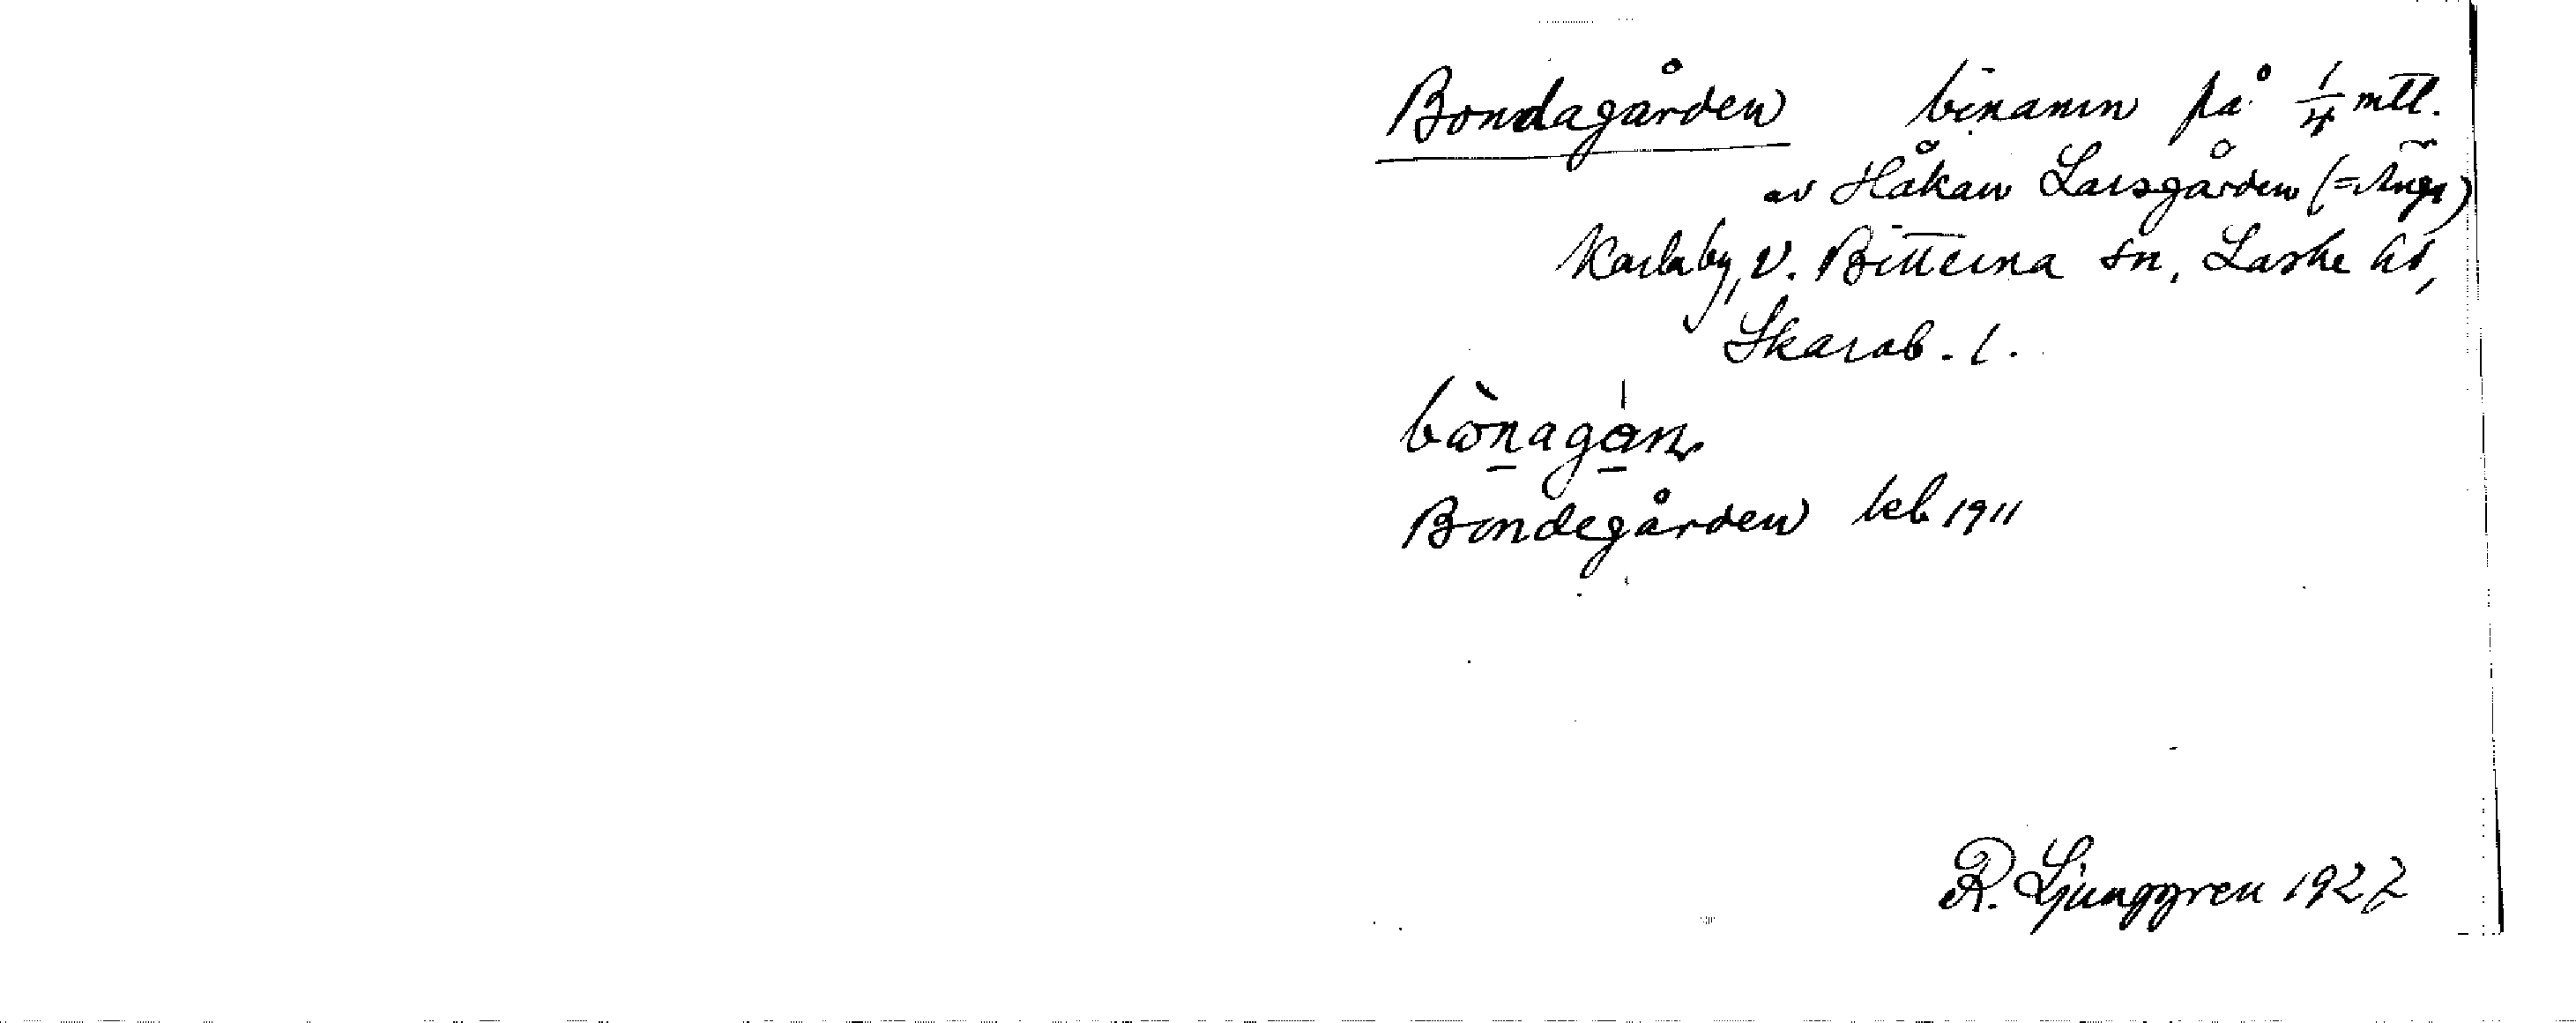 Bondagården binamn på 1/4 mtl.
av Håkan Larsgården
Karlaby, V. Bitterna sn, Laske hd,
Skarab. l.
Bondegården 1911
R. Ljunggren 1927